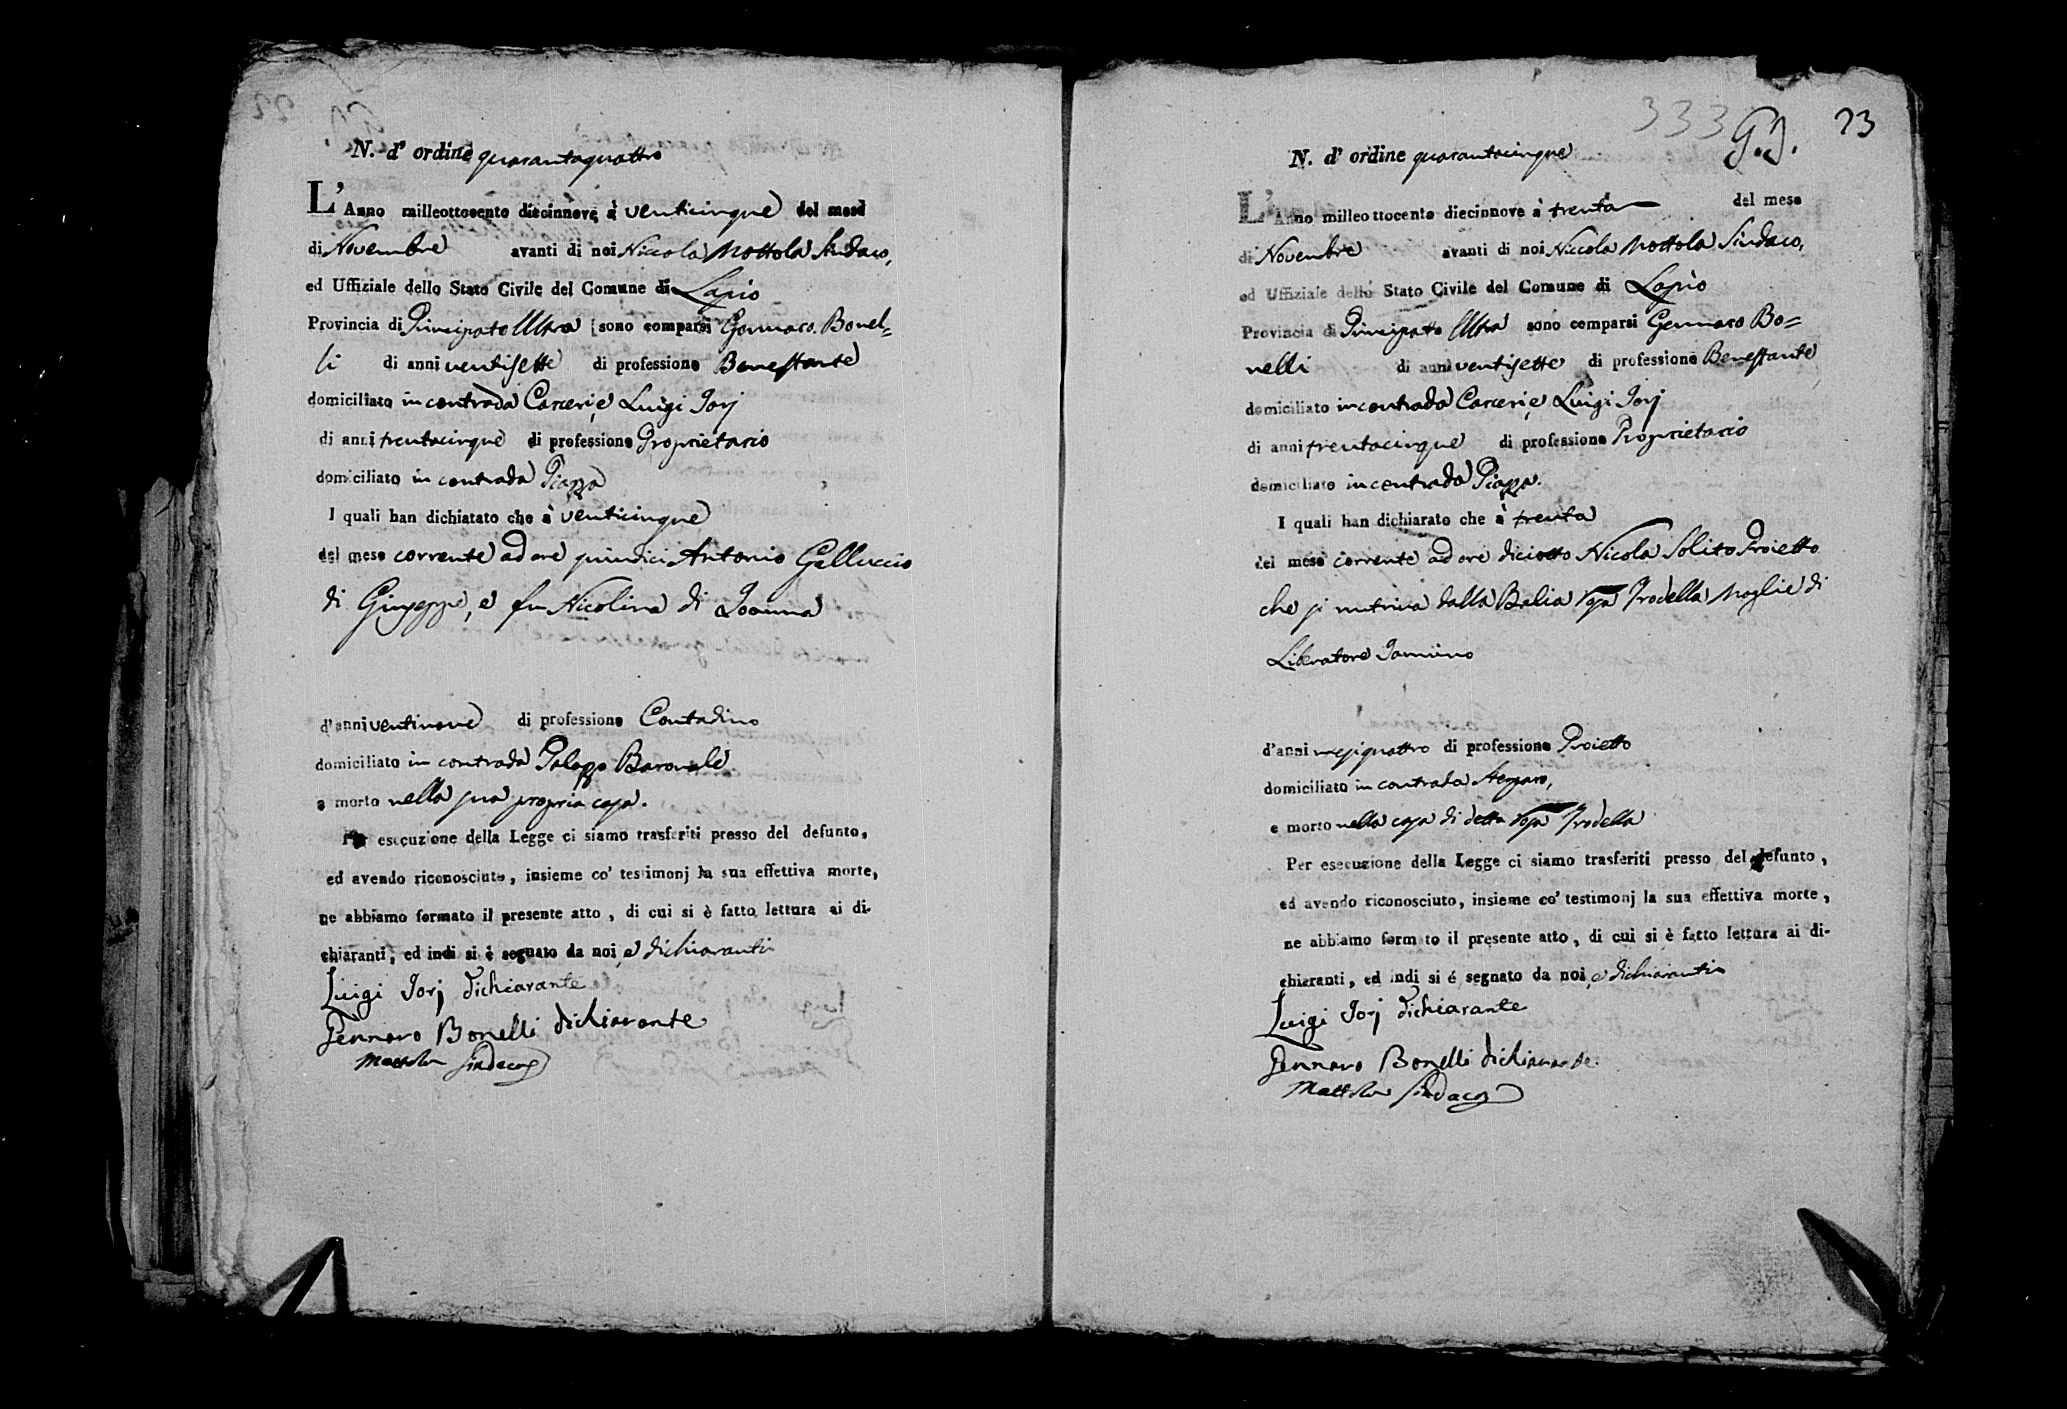 N. d' ordine quarantaquattro
L' Anno milleottocento diecinnove à venticinque del mese
di Novembre avanti di noi Niccola Mottola Sindaco,
ed Uffiziale dello Stato Civile del Comune di Lapio
Provincia di Principato Ultra sono comparsi Gennaro Bonel=
li di anni ventisette di professione Benestante
domiciliato in contrada Carceri, e Luigi Jorj
di anni trentacinque di professione Proprietario
domiciliato in contrada Piazza
I quali han dichiatato che à venticinque
del mese corrente ad ore quindici Antonio Galluccio
di Giuseppe, e fu Nicolina di Joanna
d'anni ventinove di professione Contadino
domiciliato in contrada Palazzo Baronale
e morto nella sua propria casa.
Per esecuzione della Legge ci siamo trasferiti presso del defunto,
ed avendo riconosciuto, insieme co' testimonj la sua effettiva morte,
ne abbiamo formato il presente atto, di cui si è fatto lettura ai di-
chiaranti, ed indi si è segnato da noi, e dichiaranti
Luigi Jorj dichiarante
Gennaro Bonelli dichiarante
Mottola Sindaco
333 G.J. 23
N. d' ordine quarantacinque
L' Anno milleottocento diecinnove à trenta del mese
di Novembre avanti di noi Niccola Mottola Sindaco,
ed Uffiziale dello Stato Civile del Comune di Lapio
Provincia di Principato Ultra sono comparsi Gennaro Bo=
nelli di anni ventisette di professione Benestante
domiciliato in contrada Carceri, e Luigi Jorj
di anni trentacinque di professione Proprietario
domiciliato in contrada Piazza.
I quali han dichiarato che à trenta
del mese corrente ad ore diciotto Nicola Solito Proietto
che si nutriva dalla Balia Rosa Trodella Moglie di
Liberatore Jannino
d'anni mesi quattro di professione Proietto
domiciliato in contrada
e morto nella casa di detta Rosa Trodella
Per esecuzione della Legge ci siamo trasferiti presso del defunto,
ed avendo riconosciuto, insieme co' testimonj la sua effettiva morte,
ne abbiamo formato il presente atto, di cui si è fatto lettura ai di-
chiaranti, ed indi si é segnato da noi, e dichiaranti
Luigi Jorj dichiarante
Gennaro Bonelli dichiarante.
Mottola Sindaco